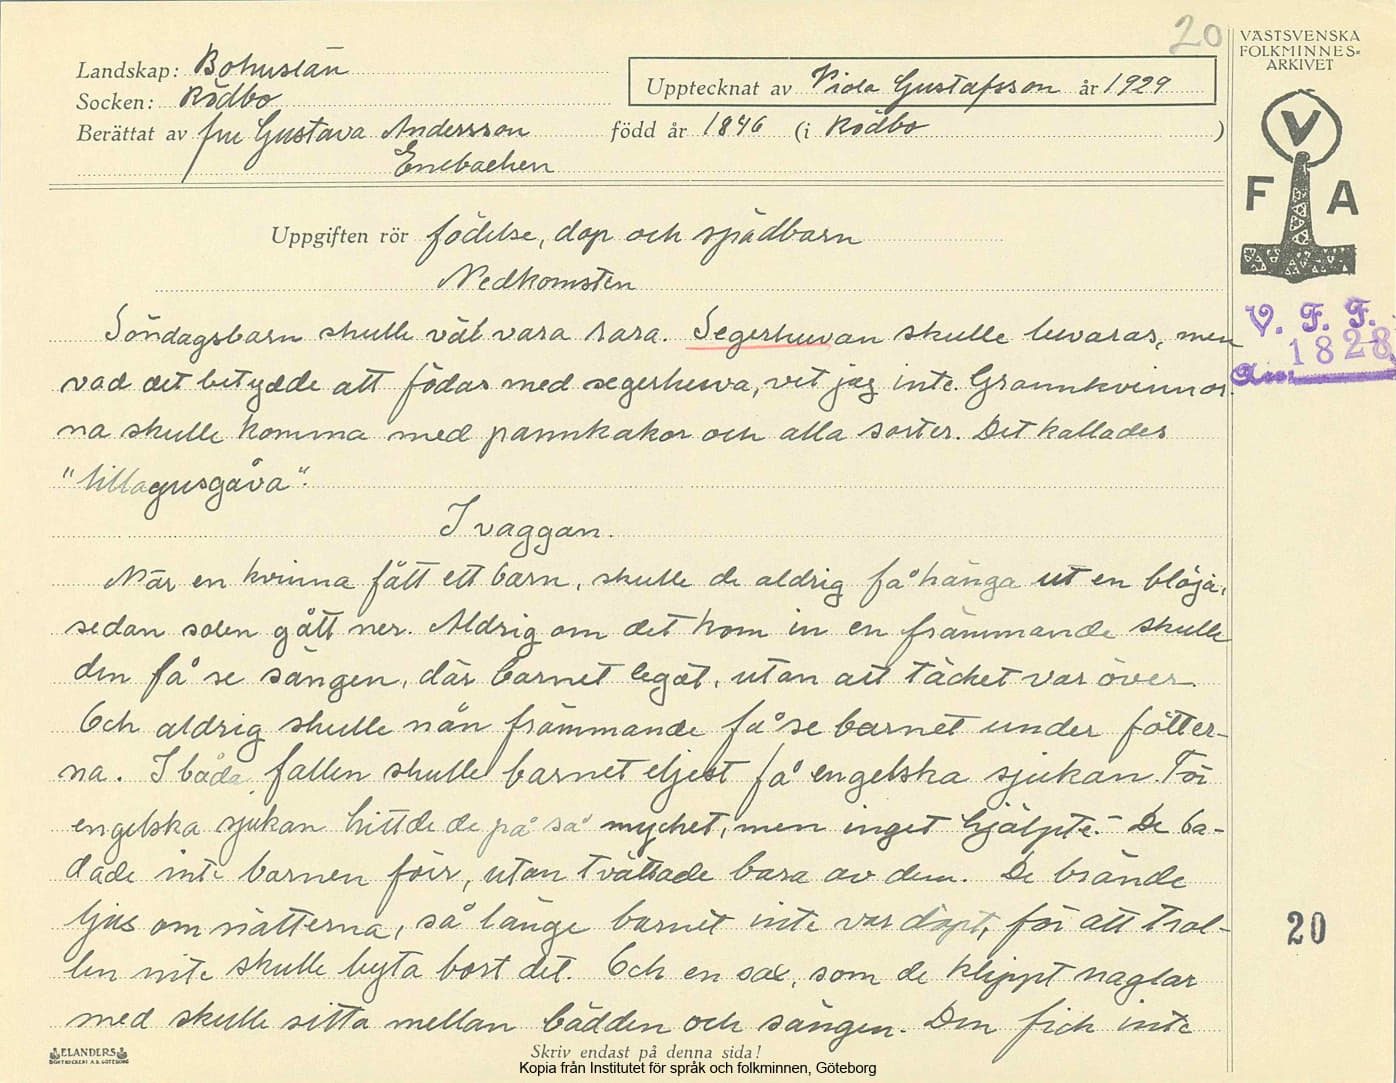 20
VÄSTSVENSKA
FOLKMINNES=
ARKIVET
Landskap: Bohuslän
Socken: Rödbo
Upptecknat av Viola Gustafsson år 1929
Berättat av fru Gustava Andersson född år 1846 (i Rödbo )
Enebacken
V
F A
Uppgiften rör födelse, dop och spädbarn
Nedkomsten
V. F. F.
1828
Söndagsbarn skulle väl vara rara. Segerhuvan skulle bevaras, men
vad det betydde att födas med segerhuva, vet jag inte. Grannkvinnor-
na skulle komma med pannkakor och alla sorter. Det kallades
"tillagusgåva".
I vaggan.
När en kvinna fått ett barn, skulle de aldrig få hänga ut en blöja,
sedan solen gått ner. Aldrig om det kom in en främmande skulle
den få se sängen, där barnet legat, utan att täcket var över.
Och aldrig skulle nån främmande få se barnet under fötter-
na. I båda fallen skulle barnet eljest få engelska sjukan. För
engelska sjukan hittde de på så mycket, men inget hjälpte. – De ba-
dade inte barnen förr, utan tvättade bara av dem. De brände
ljus om nätterna, så länge barnet inte var döpt, för att trol-
len inte skulle byta bort det. Och en sax, som de klippt naglar
med skulle sitta mellan bädden och sängen. Den fick inte
20
ELANDERS
BOKTRYCKERI A.B. GÖTEBORG
Skriv endast på denna sida!
Kopia från Institutet för språk och folkminnen, Göteborg